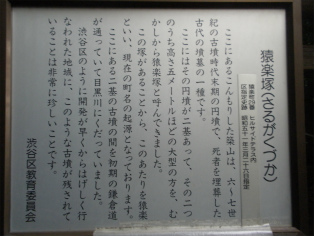 猿楽塚〈さるがくづか〉
猿楽町29番 ヒルサイドテラス内
区指定史跡 昭和五十一年三月二十六日指定
ここにあるこんもりした築山は、六〜七世
紀の古墳時代末期の円墳で、死者を埋葬した
古代の墳墓の一種です。
ここにはその円墳が二基あって、その二つ
のうち高さ五メートルほどの大型の方を、む
かしから猿楽塚と呼んできました。
この塚があることから、このあたりを猿楽
といい、現在の町名の起源となっております。
ここにある二基の古墳の間を初期の鎌倉道
が通っていて目黒川にくだっていました。
渋谷区のように開発が早くからはげしく行
なわれた地域に、このような古墳が残されて
いることは非常に珍しいことです。
渋谷区教育委員会